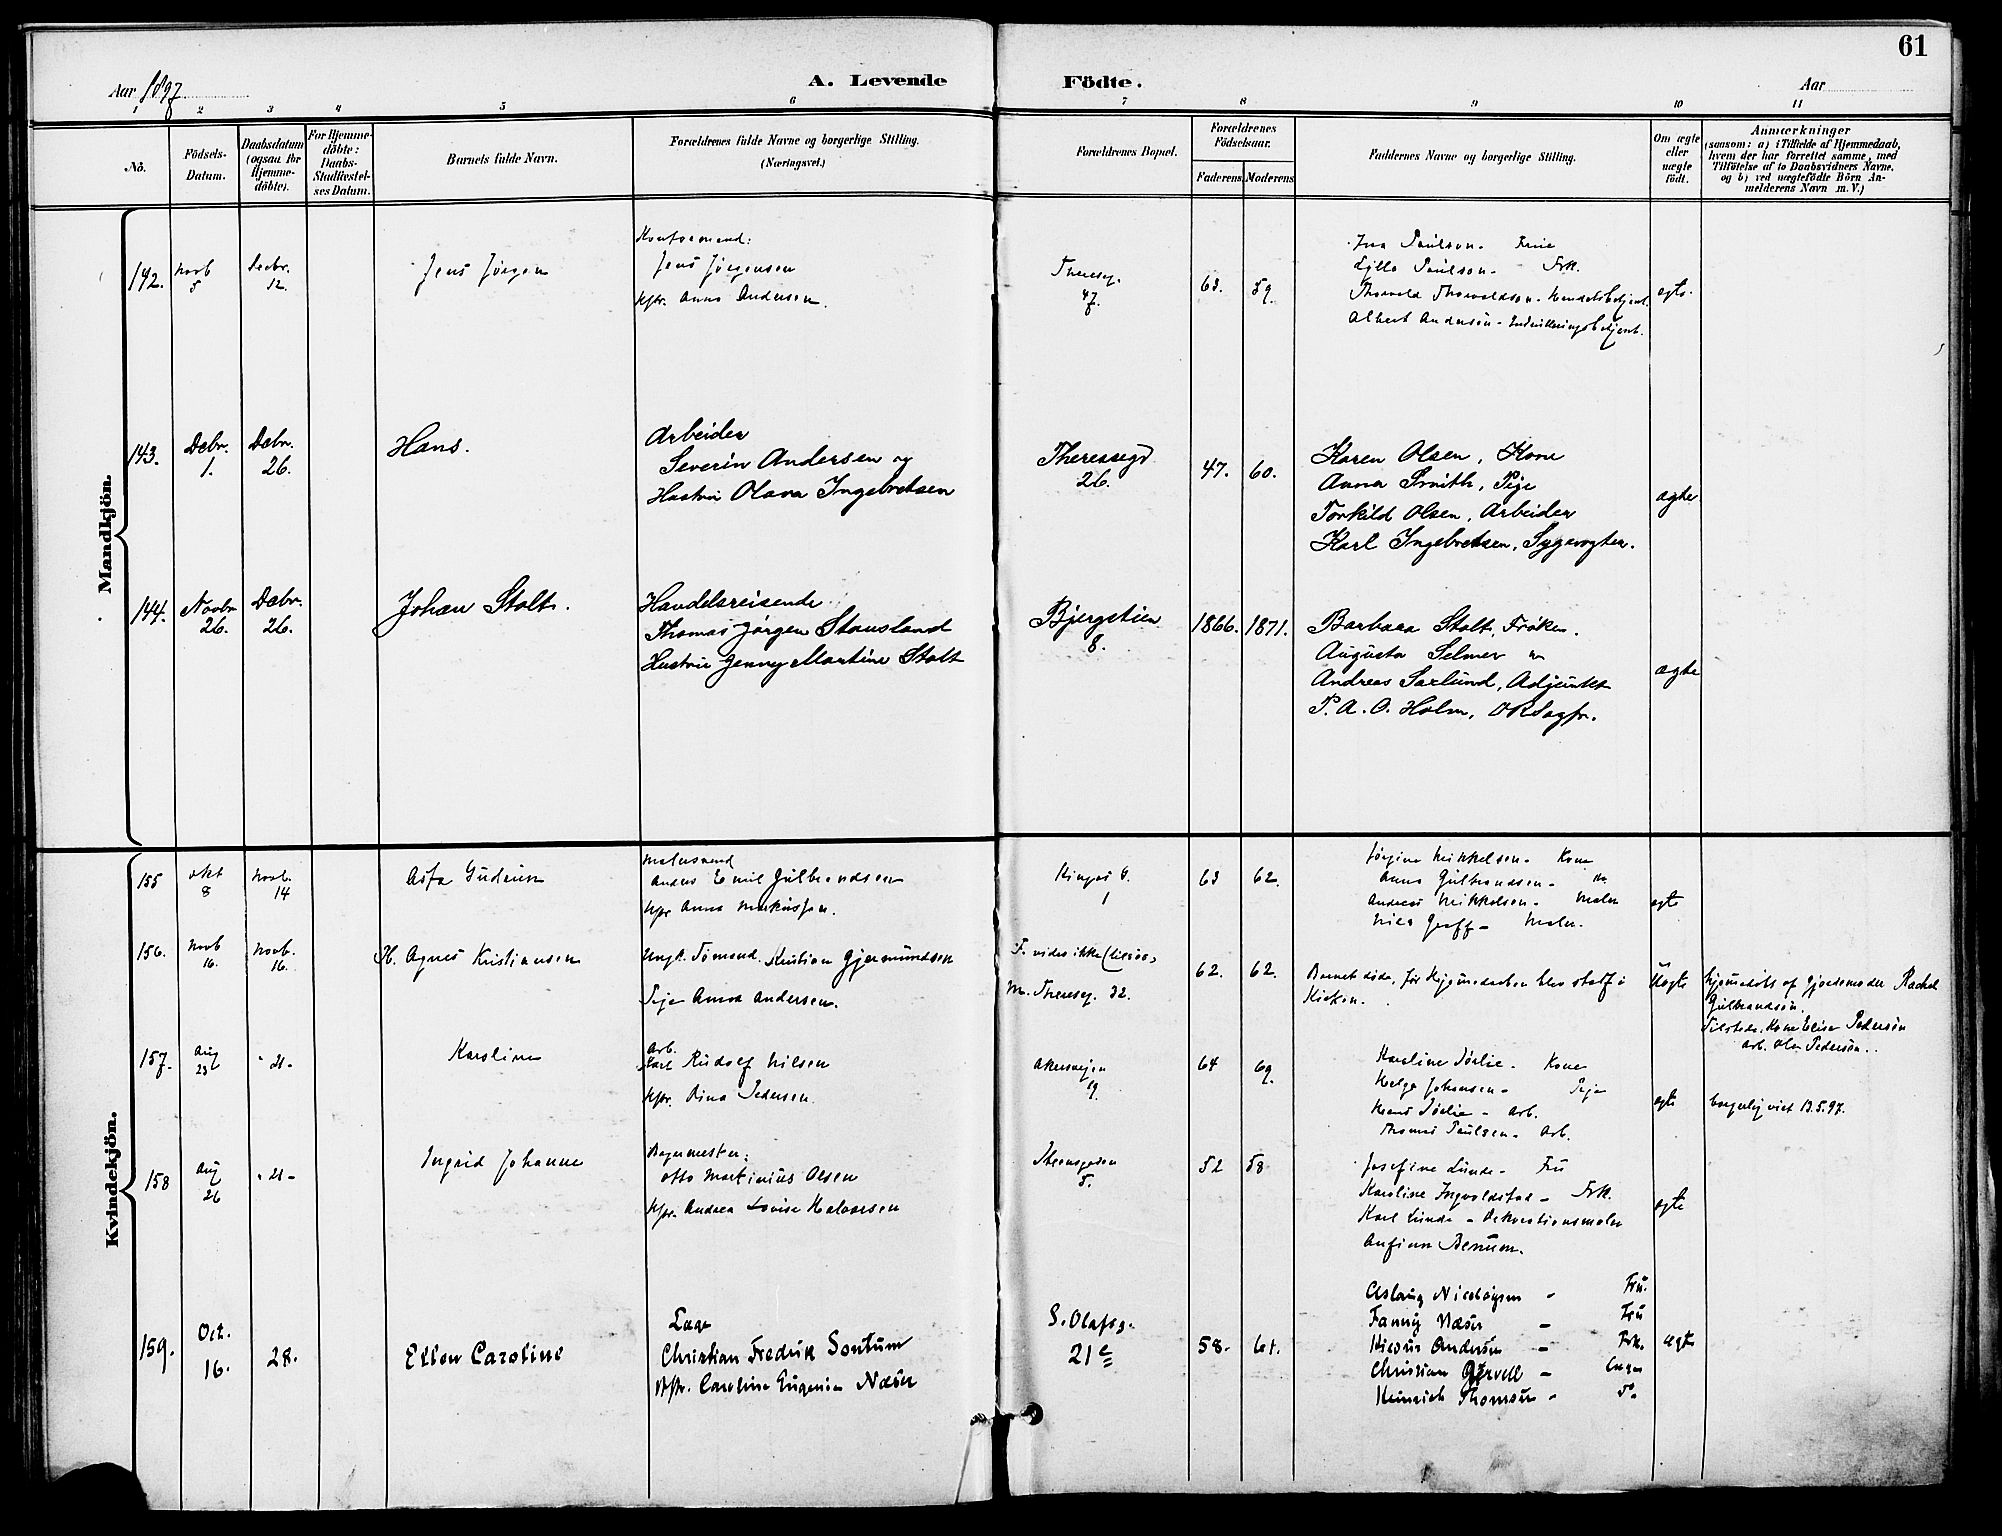 61
Aar 1897
A. Levende Födte.
Aar
1 2 3 4 5 6 7 8 9 10 11
No.
Födsels-
Datum.
Daabsdatum
(ogsaa for
Hjemme-
döbte).
For Hjemme-
döbte:
Daabs-
Stadfæstel-
ses Datum.
Barnets fulde Navn.
Forældrenes fulde Navne og borgerlige Stilling.
(Næringsvei.)
Forældrenes Bopæl.
Forældrenes
Födselsaar.
Faderens Moderens
Faddernes Navne og borgerlige Stilling.
Om ægte
eller
uægte
födt.
Anmærkninger
(saasom: a) i Tilfælde af Hjemmedaab,
hvem der har forrettet samme, med
Tilföielse af to Daabsvidners Navne,
og b) ved uægtefödte Börn An-
melderens Navn m. V.)
Mandkjön.
142. Novb 5 Decbr. 12
Jens Jörgen
Kontormand:
Jens Jörgensen
Hstr. Anna Andersen.
Theresg. 47.
63. 59.
Ina Paulson. Frue
Lilla Paulson. Frk.
Thorvald Thorvaldson. Handelsbetjent.
Albert Andersen - Inddrivningsbetjent.
ægte.
143. Decbr. 1. Decbr. 26.
Hans.
Arbeider
Severin Andersen og
Hustru Olava Ingebretsen
Theresegd 26.
47. 60.
Karen Olsen, Kone
Anna Smith, Pige
Torkild Olsen, Arbeider
Karl Ingebretsen, Sygevogter.
ægte
144. Novbr 26. Decbr. 26.
Johan Stolt.
Handelsreisende
Thomas Jørgen Stausland
Hustru Jenny Martine Stolt
Bjergstien 8.
1866. 1871.
Barbara Stolt, Frøken.
Augusta Selmer "
Andreas Saxlund, Adjunkt
P. A. O. Holm, ORSagfr.
ægte
Kvindekjön.
155 Okt 8 Novb. 14
Asta Gudrun
Malersvend
Anders Emil Gulbrandsen
Hstr Anna Markussen.
1
63 62.
Jörgine Mikkelsen. Kone
Anna Gulbrandsen -
Andreas Mikkelsen. Maler
Nils Graff - Maler.
ægte
156. Novb 16. Novb. 16.
H. Agnes Kristiansen
Ungk. Tömmd. Kristian Gjermundsen
Pige Anna Andersen.
F. vides ikke
M. Theresg. 32.
62. 62.
Barnet döde, før Hjemmedaaben blev stadf. i
Kirken.
Uægte
hjemmedöbt af Gjordemoder Rachel
Gulbrandsen.
Tilstede: Kone Elise Pedersen
Arb. Ole Pedersen.
157. Aug 23 " 21 -
Karoline
Arb.
Karl Rudolf Nilsen
Hstr. Dina Pedersen
Akersveien 19.
64 69.
Karoline Dörlie. Kone
Helga Johansen - Pige
Hans Dörlie - Arb.
Thomas Paulsen - Arb.
ægte
borgerlig viet 13.5.97.
158 Aug 26 " 21 -
Ingrid Johanne
Bagermester:
Otto Martinius Olsen
Hstr. Andrea Lovise Halvorsen
5.
52 58
Josefine Lunde - Fru
Karoline Ingvoldstad - Frk.
Karl Lunde - Dekorationsmaler
Anfinn Benum.
ægte
159. Oct. 16. 28.
Ellen Caroline
Læge
Christian Fredrik Sontum
Hstr. Caroline Eugenie Næser
S. Olafsg. 21 c
58. 61.
Aslaug Nicolaysen - Fru.
Fanny Næser - Fru
Andersen - Frk.
Christian Gervell - Læge
Heinrich Thomsen - Do
ægte